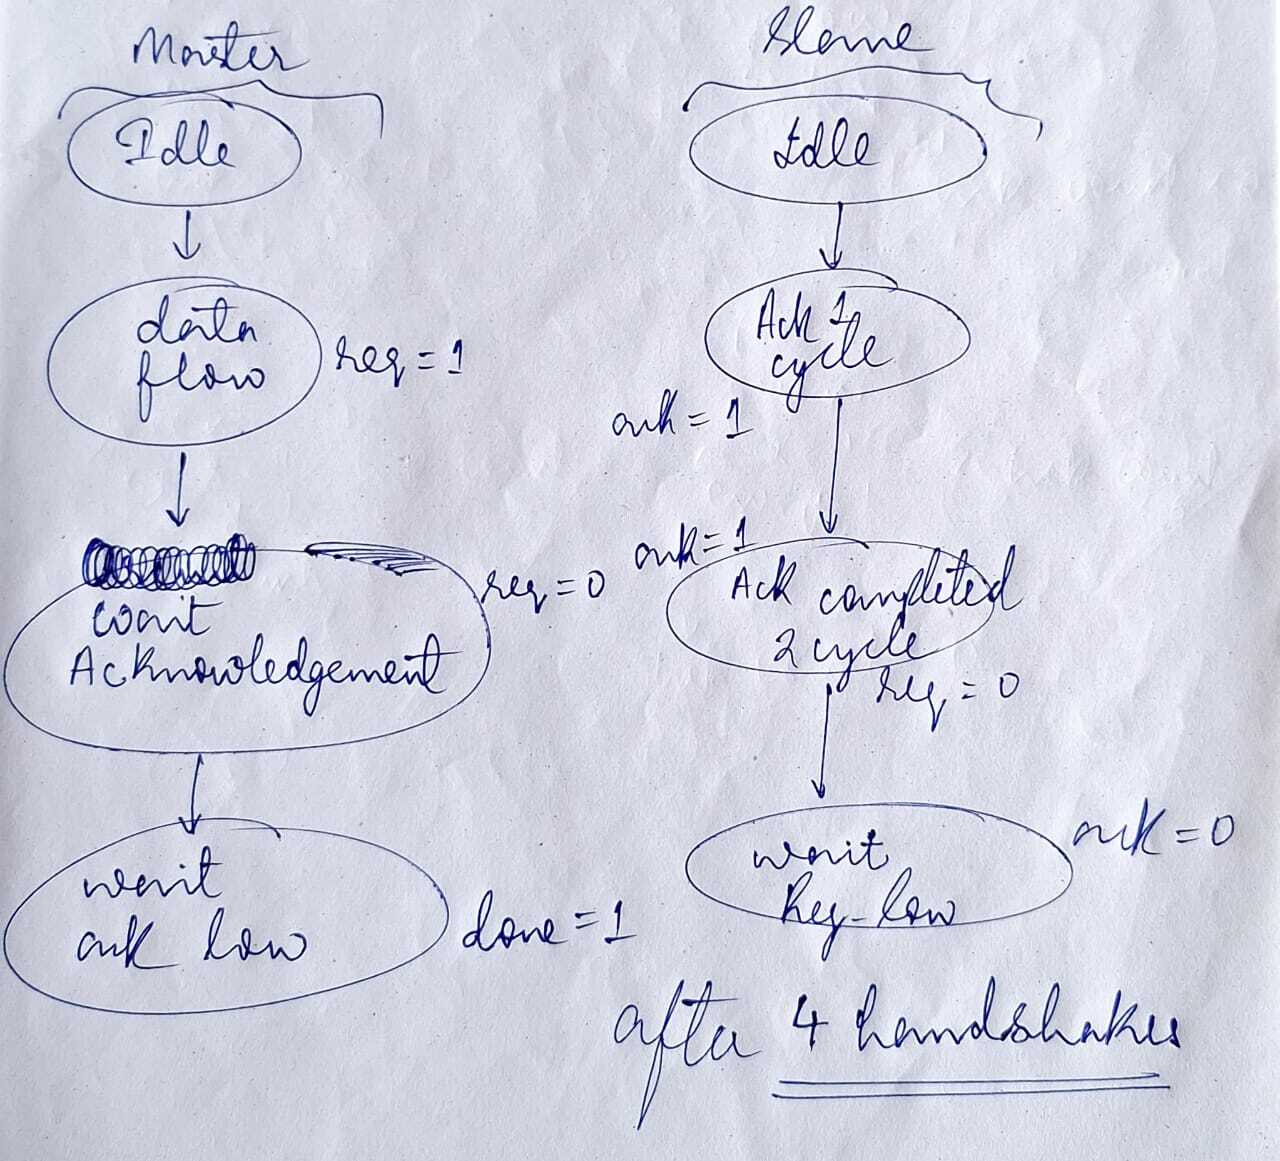 Master
Idle
data
flow
req = 1
wait
Acknowledgement
req = 0
wait
ack low
done = 1
Slave
Idle
Ack 1
cycle
ack = 1
ack = 1
Ack completed
2 cycle
req = 0
wait
Req-low
ack = 0
after 4 handshakes